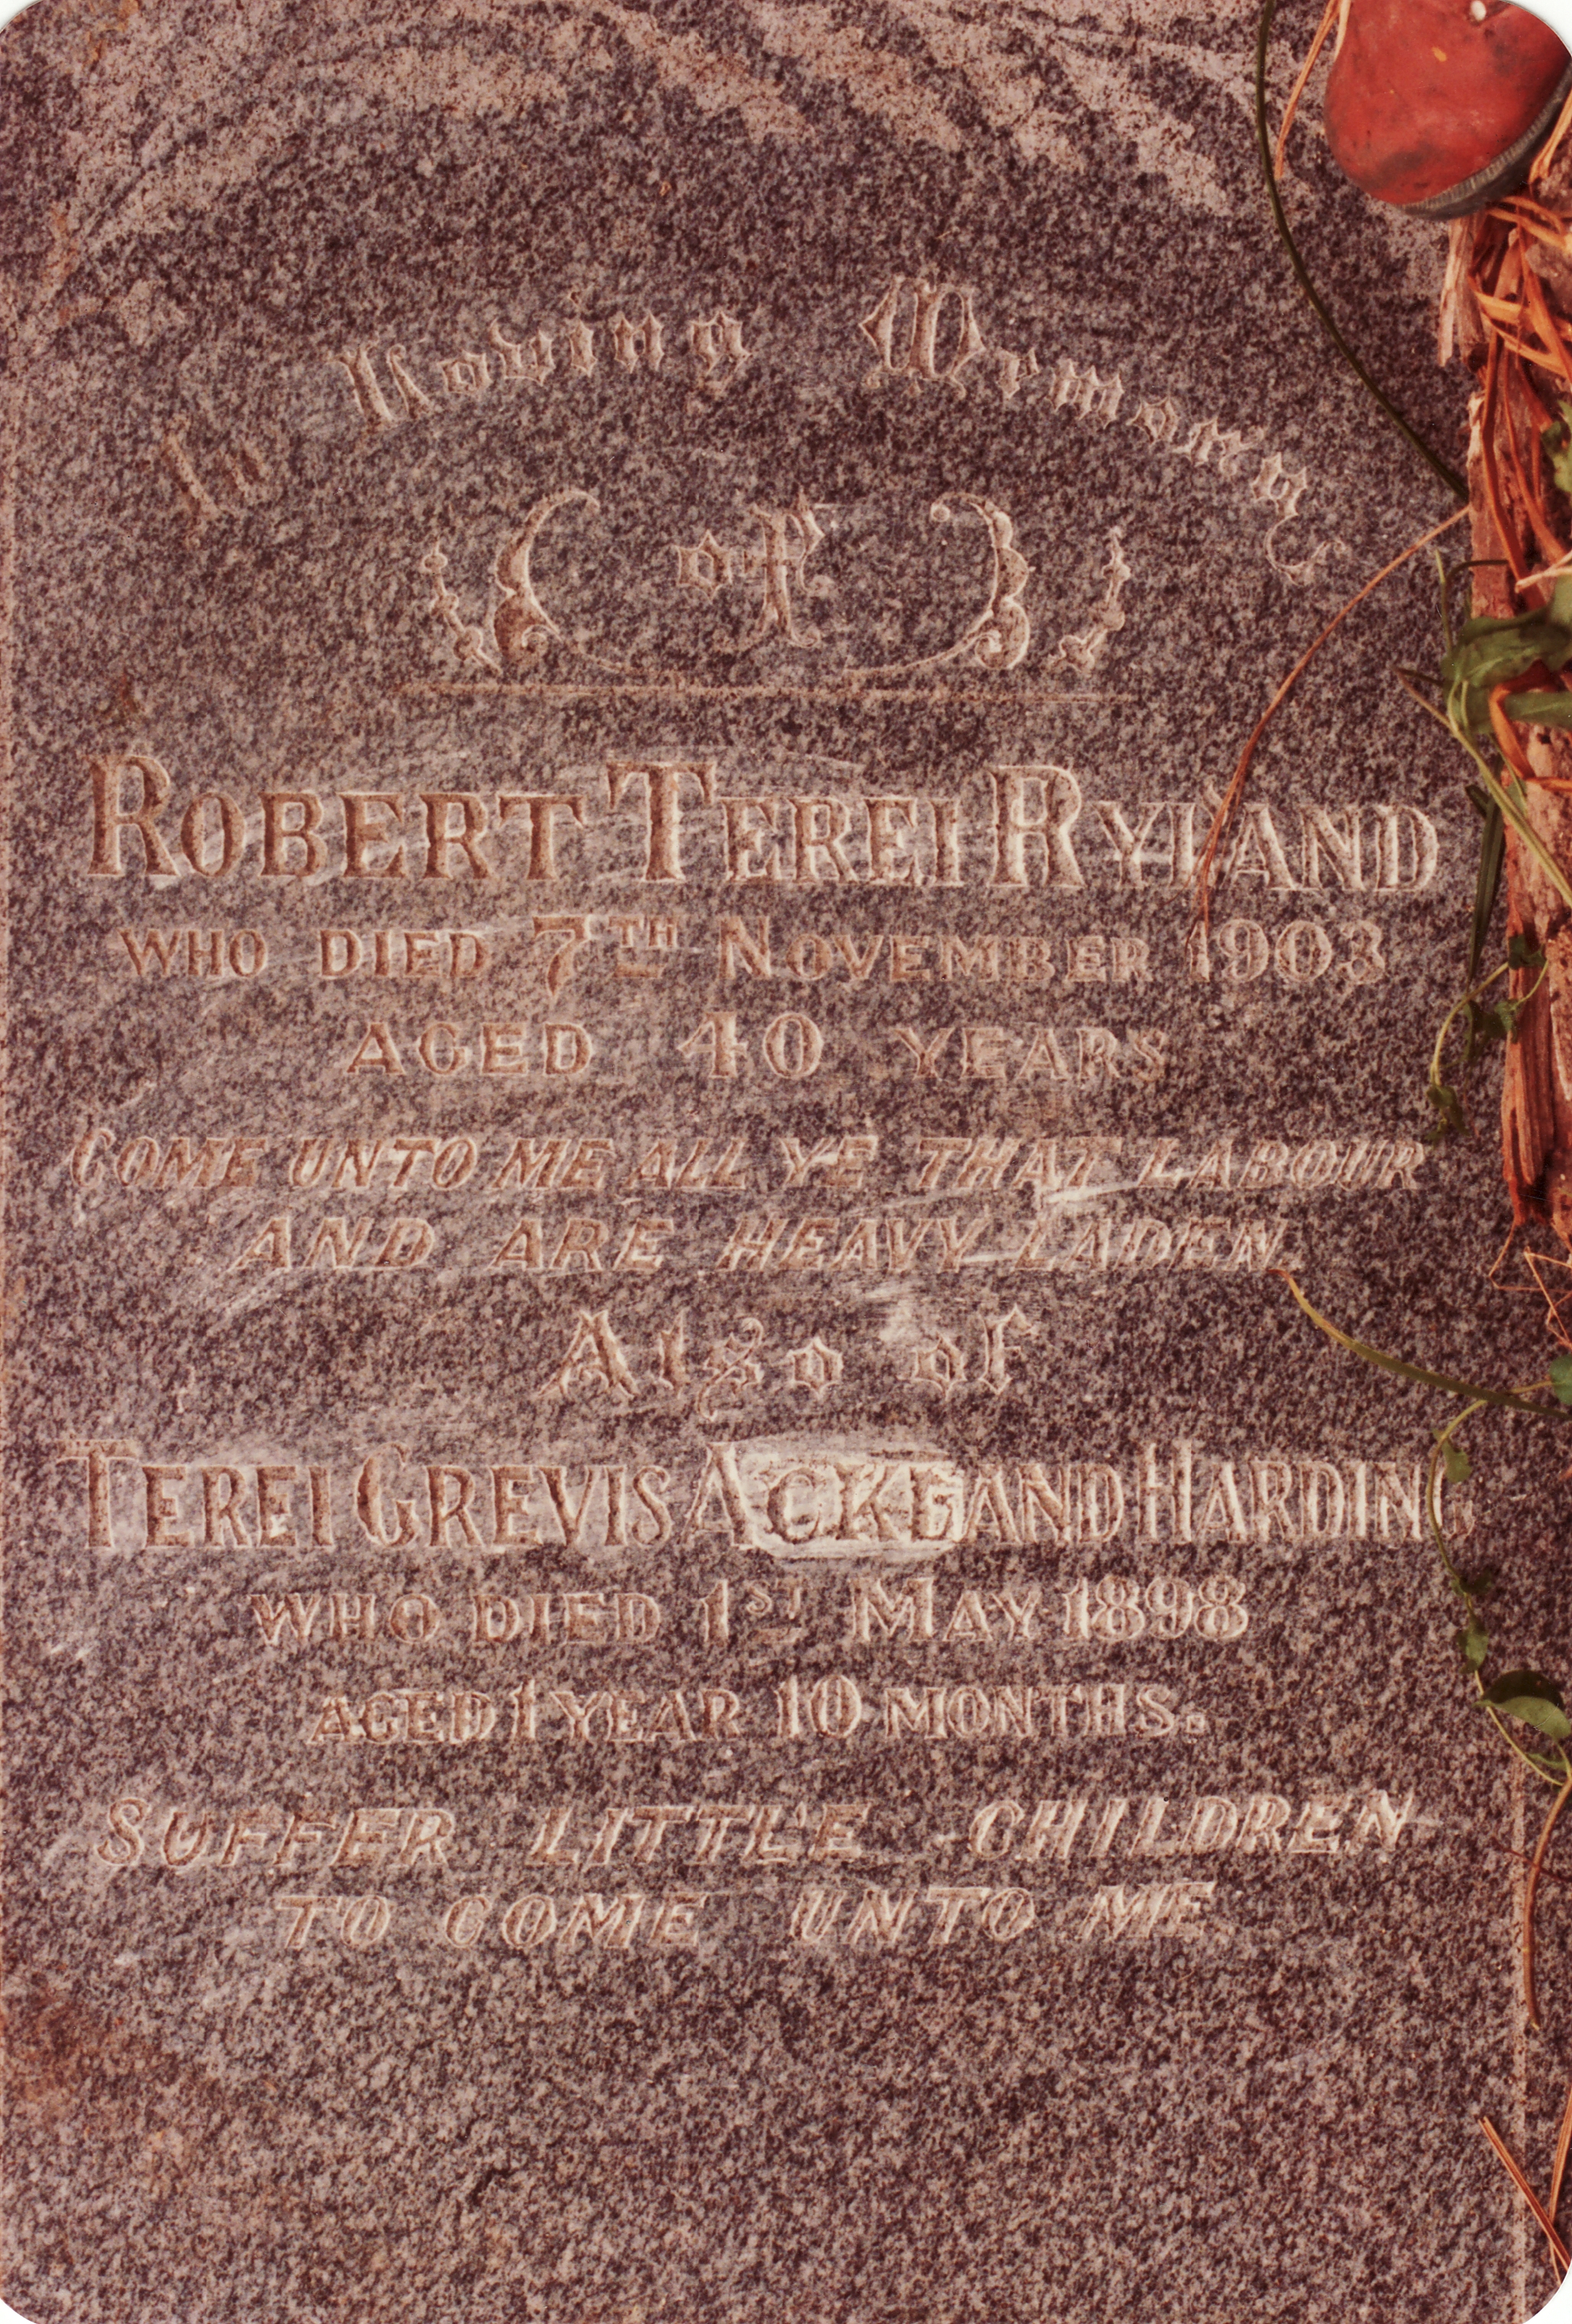 In Loving Memory
of
ROBERT TEREI RYLAND
WHO DIED 7TH NOVEMBER 1903
AGED 40 YEARS
COME UNTO ME ALL YE THAT LABOUR
AND ARE HEAVY LADEN.
Also of
TEREI GREVIS ACKLAND HARDING
WHO DIED 1ST MAY 1898
AGED 1 YEAR 10 MONTHS.
SUFFER LITTLE CHILDREN
TO COME UNTO ME.